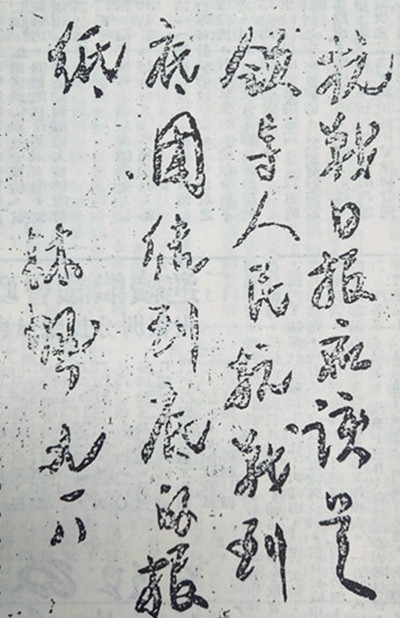 抗战日报应该是
领导人民抗战到
底团结到底的报
纸
林枫 九一八